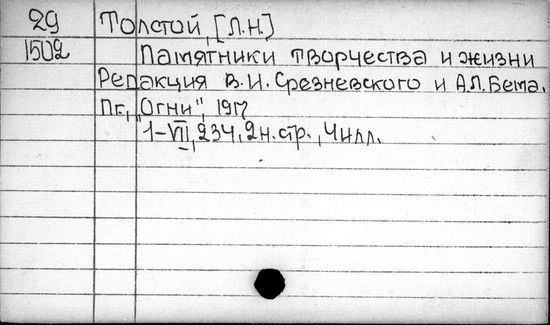 29 Толстой, [Л.Н.]
1502 Памятники творчества и жизни
Редакция В.И. Срезневского и А.Л. Бема.
Пг., „Огни", 1917
1-VII, 234, 2 н. стр., 4 илл.